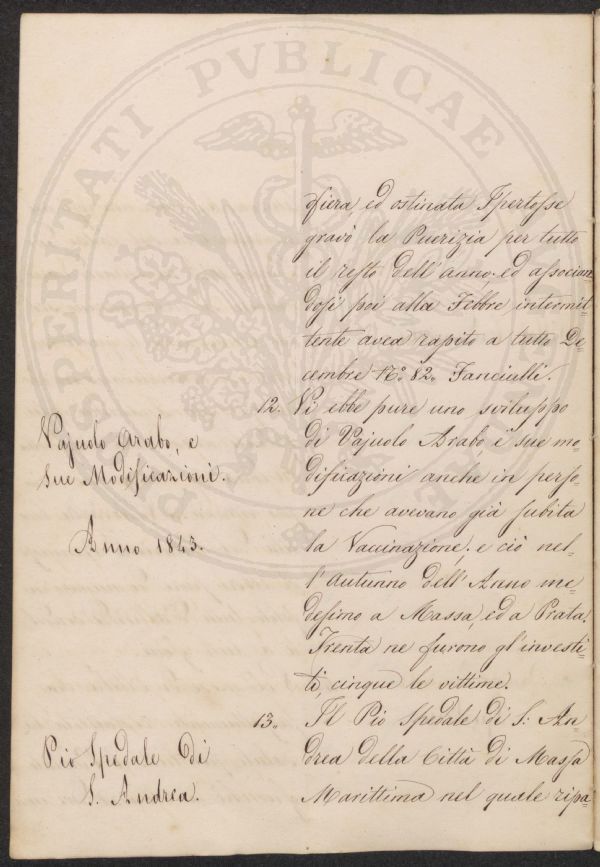 PROSPERITATI PVBLICAE
fiera ed ostinata Ipertosse
gravò la Puerizia per tutto
il resto dell'anno, ed associan=
dosi poi alla Febbre intermit=
tente avea rapito a tutto De=
cembre N.° 82. Fanciulli.
Vajuolo Arabo, e
sue Modificazioni.
Anno 1843.
12. Vi ebbe pure uno sviluppo
di Vajuolo Arabo, e sue mo=
dificazioni anche in perso=
ne che avevano già subita
la Vaccinazione; e ciò nel=
l'Autunno dell'Anno me=
desimo a Massa, ed a Prata.
Trenta ne furono gl'investi=
ti, cinque le vittime.
Pio Spedale di
S. Andrea.
13. Il Pio Spedale di S: An=
drea della Città di Massa
Marittima nel quale ripa=